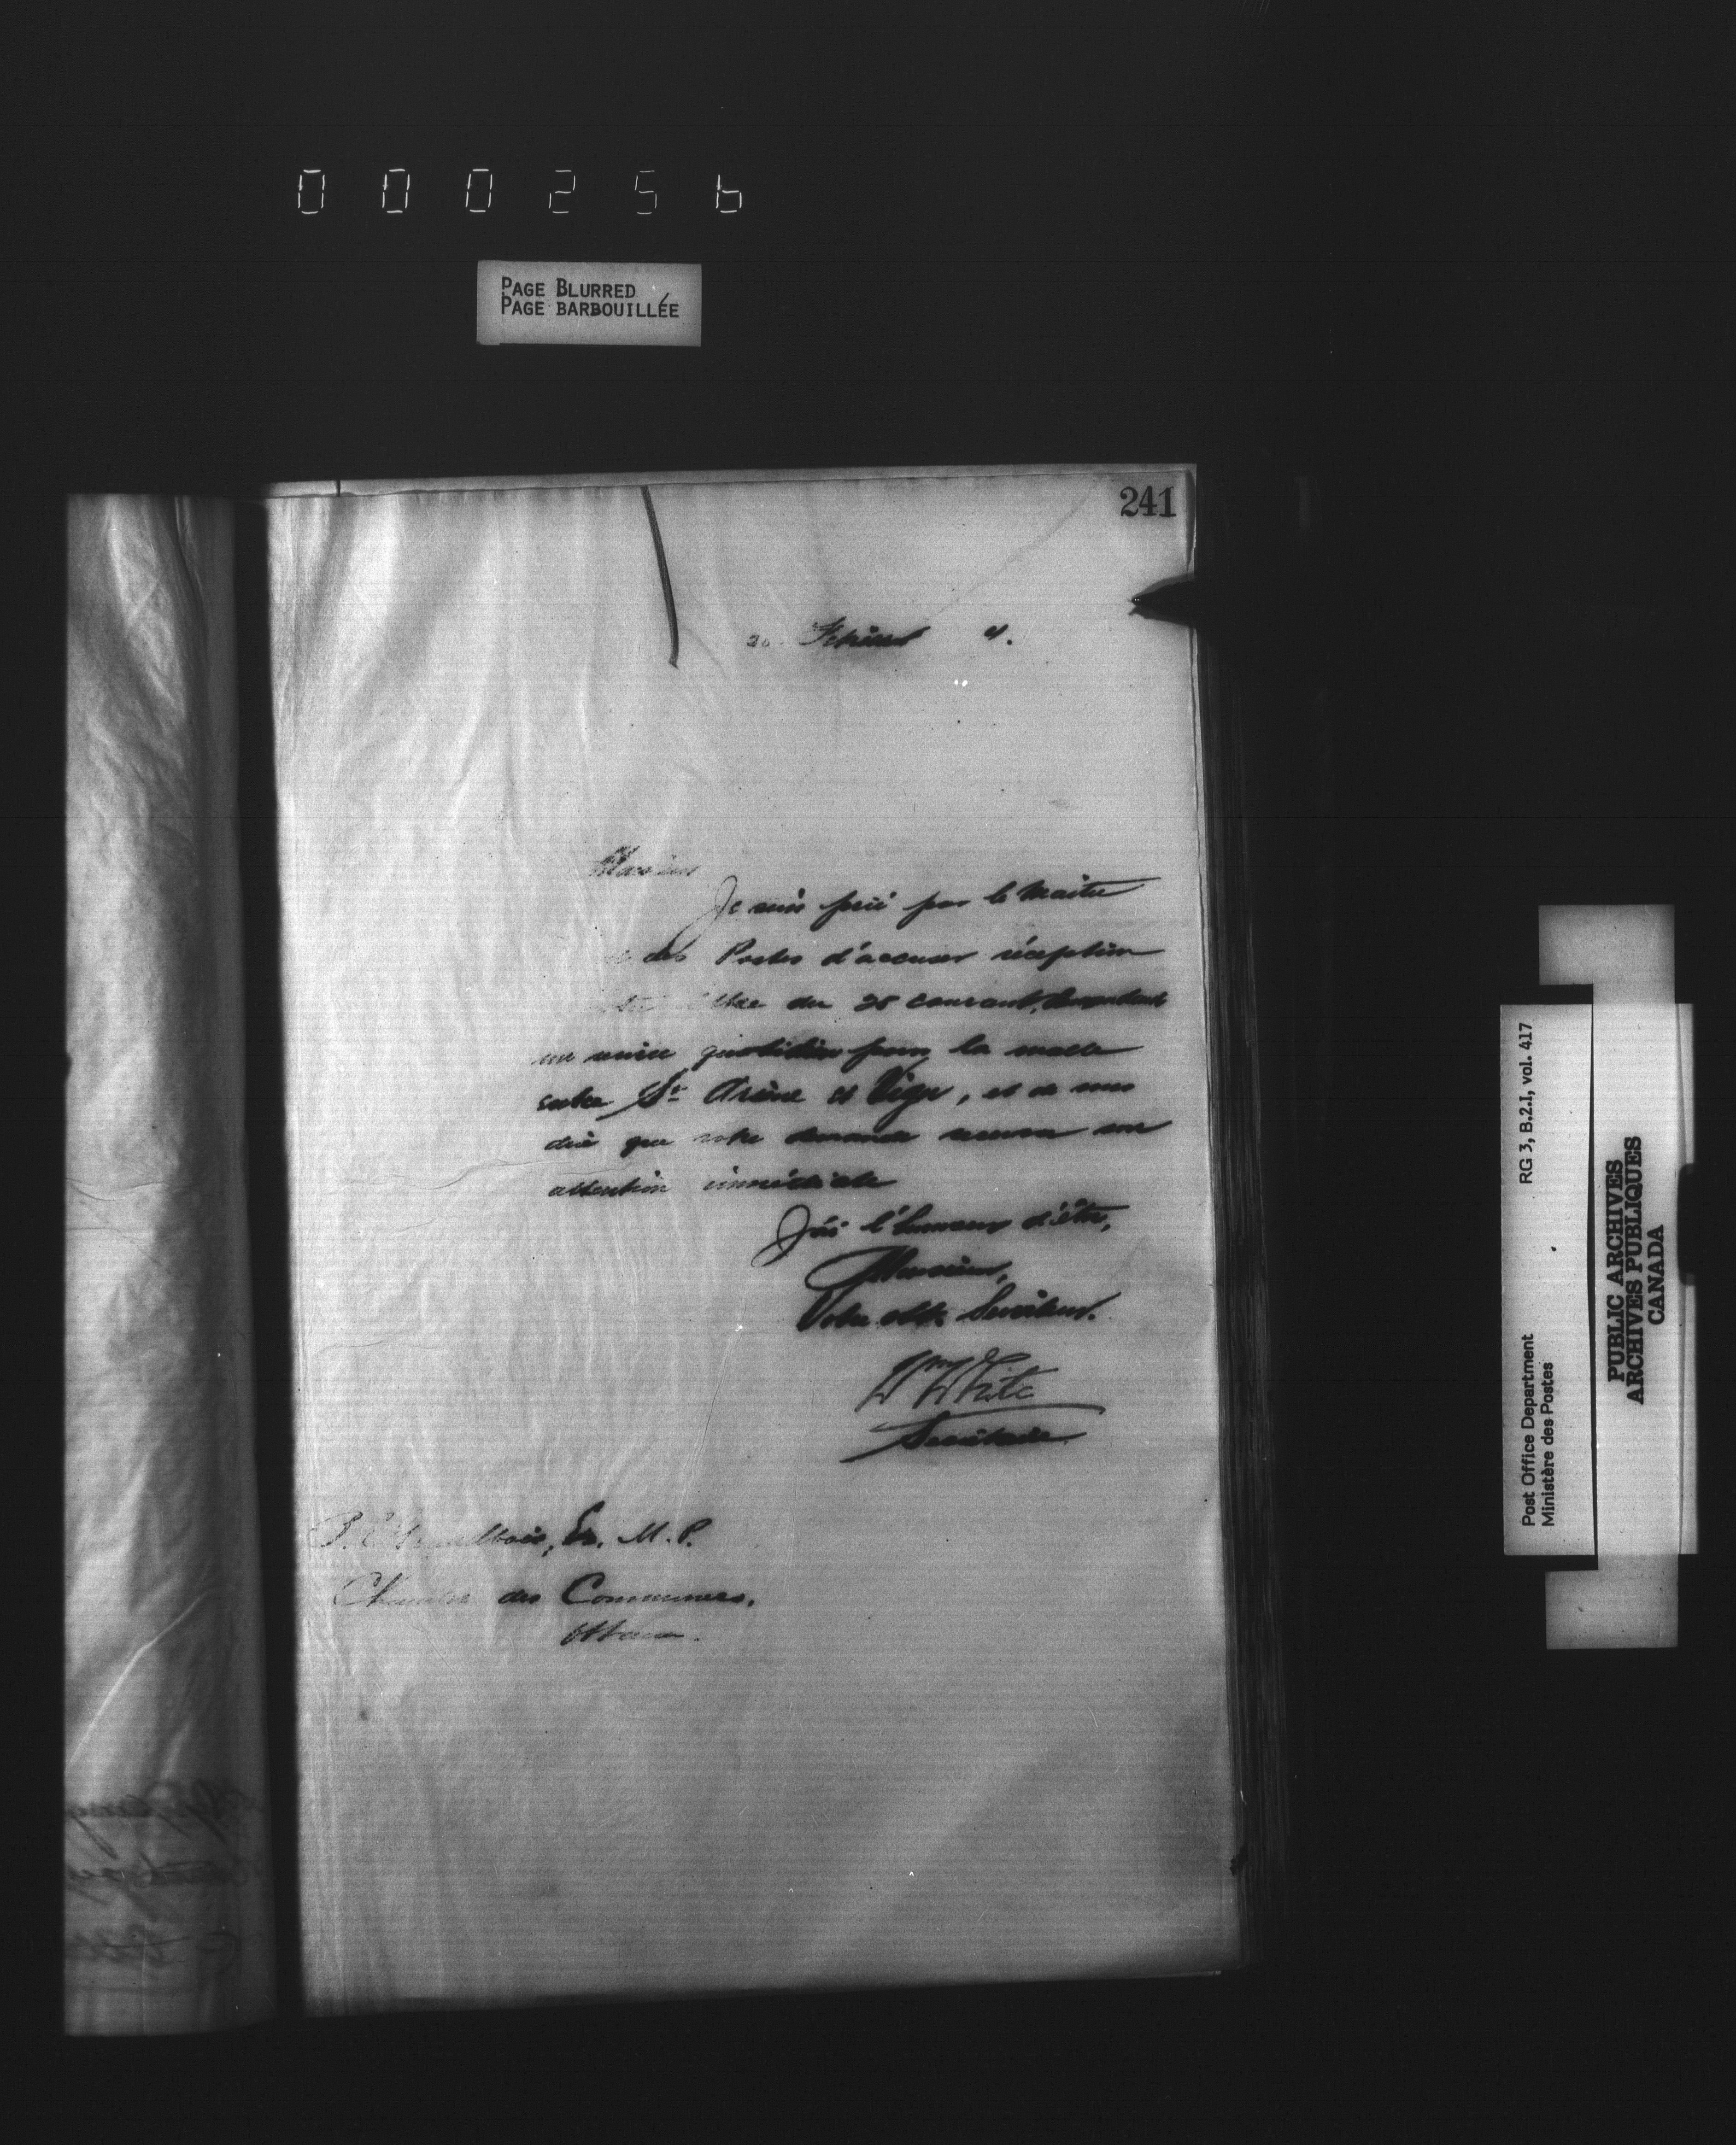 000256
PAGE BLURRED
PAGE BARBOUILLÉE
241
Février
Monsieur
Je suis prié par le Maitre
des Postes d'accuser réception
du 28 courant, demandant
un service quotidien pour la malle
entre St Arsène et Viger, et de vous
dire que votre demande recevra son
attention immédiate
J'ai l'honneur d'être,
Monsieur,
Votre obt Serviteur.
Wm White
Secrétaire.
M. P.
Chambre des Communes,
Ottawa.
Post Office Department RG 3, B.2.I, vol. 417
Ministère des Postes
PUBLIC ARCHIVES
ARCHIVES PUBLIQUES
CANADA